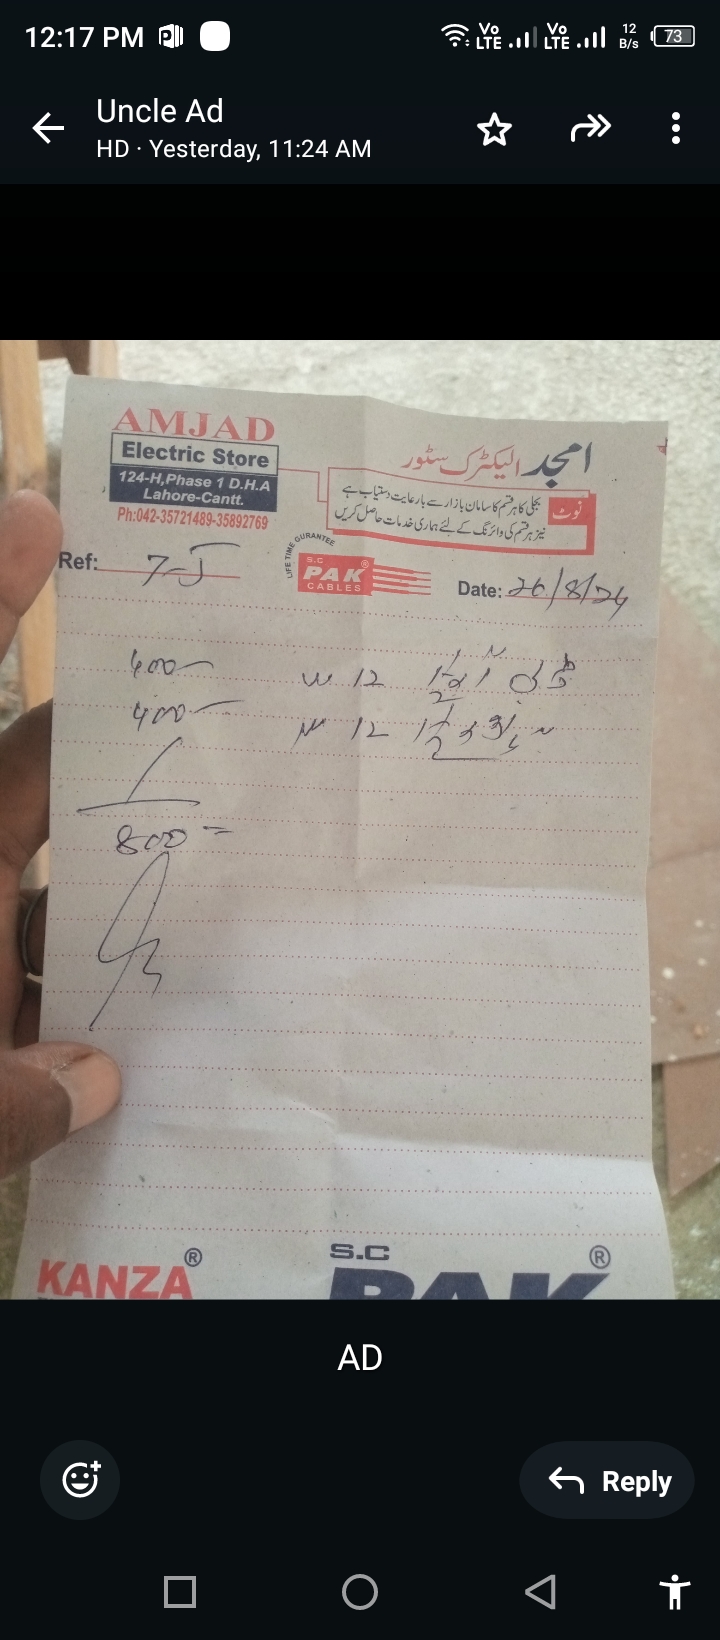 12:17 PM
Vo LTE Vo LTE 12 B/s 73
Uncle Ad
HD · Yesterday, 11:24 AM
AMJAD
Electric Store
124-H,Phase 1 D.H.A
Lahore-Cantt.
Ph:042-35721489-35892769
امجد الیکٹرک سٹور
نوٹ
بجلی کا ہر قسم کا سامان بازار سے بارعایت دستیاب ہے
نیز ہر قسم کی وائرنگ کے لئے ہماری خدمات حاصل کریں
LIFE TIME GURANTEE
S.C
PAK ®
CABLES
Ref: 7-J
Date: 26/8/24
400 12
400 12
800 =
KANZA ®
S.C
PAK ®
AD
Reply